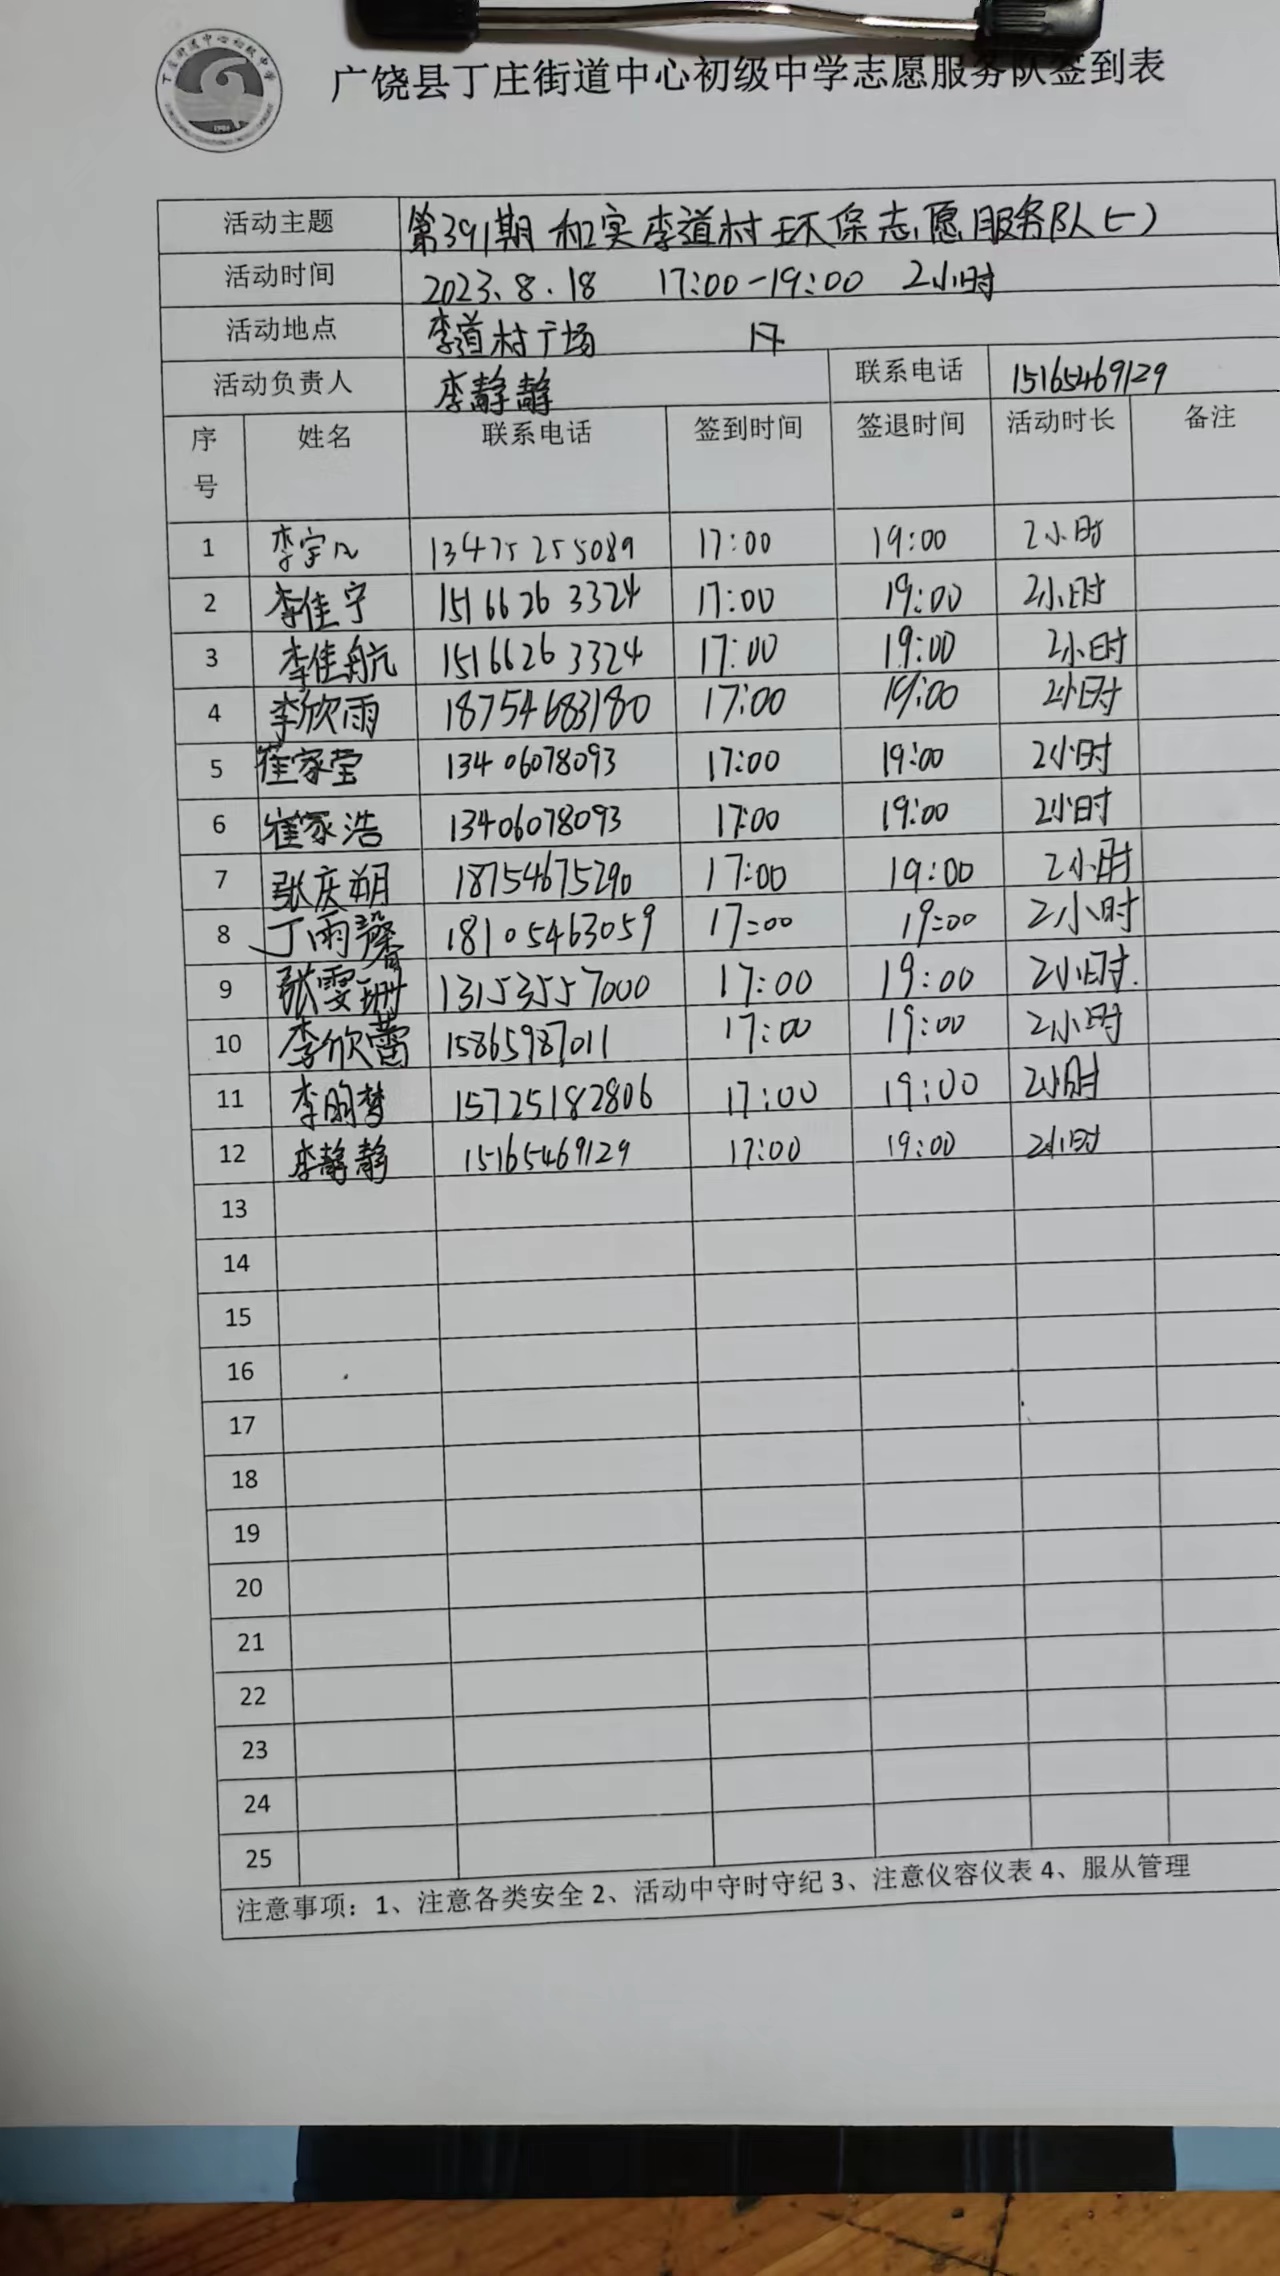 丁庄街道中心初级中学
广饶县丁庄街道中心初级中学志愿服务队签到表
活动主题 第391期 和实李道村环保志愿服务队(一)
活动时间 2023.8.18 17:00-19:00 2小时
活动地点 李道村广场
活动负责人 李静静 联系电话 15165469129
序号 姓名 联系电话 签到时间 签退时间 活动时长 备注
1 李宇凡 13475255089 17:00 19:00 2小时
2 李佳宁 15166263324 17:00 19:00 2小时
3 李佳航 15166263324 17:00 19:00 2小时
4 李欣雨 18754683180 17:00 19:00 2小时
5 崔家莹 13406078093 17:00 19:00 2小时
6 崔家浩 13406078093 17:00 19:00 2小时
7 张庆朔 18754675290 17:00 19:00 2小时
8 丁雨馨 18105463059 17:00 19:00 2小时
9 张雯珊 13153557000 17:00 19:00 2小时.
10 李欣蕾 15865987011 17:00 19:00 2小时
11 李明梦 15725182806 17:00 19:00 2小时
12 李静静 15165469129 17:00 19:00 2小时
13
14
15
16
17
18
19
20
21
22
23
24
25
注意事项：1、注意各类安全 2、活动中守时守纪 3、注意仪容仪表 4、服从管理